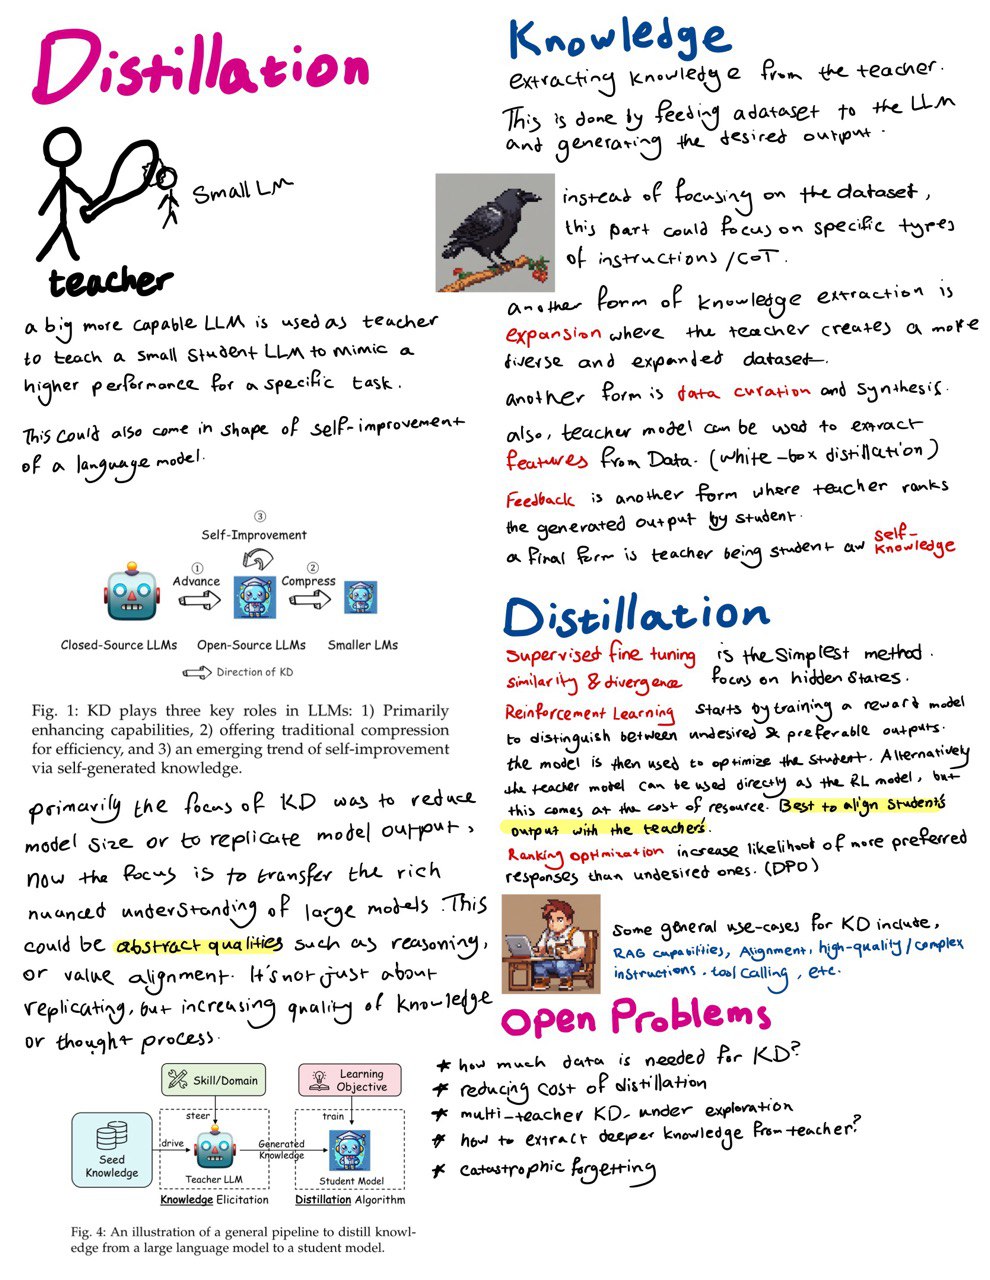 Distillation
Small LM
teacher
a big more capable LLM is used as teacher
to teach a small student LLM to mimic a
higher performance for a specific task.
This could also come in shape of self-improvement
of a language model.
③
Self-Improvement
①
Advance
②
Compress
Closed-Source LLMs
Open-Source LLMs
Smaller LMs
Direction of KD
Fig. 1: KD plays three key roles in LLMs: 1) Primarily
enhancing capabilities, 2) offering traditional compression
for efficiency, and 3) an emerging trend of self-improvement
via self-generated knowledge.
primarily the focus of KD was to reduce
model size or to replicate model output,
now the focus is to transfer the rich
nuanced understanding of large models. This
could be abstract qualities such as reasoning,
or value alignment. It's not just about
replicating, but increasing quality of knowledge
or thought process.
Skill/Domain
Learning
Objective
steer
train
Seed
Knowledge
drive
Generated
Knowledge
Teacher LLM
Student Model
Knowledge Elicitation
Distillation Algorithm
Fig. 4: An illustration of a general pipeline to distill knowl-
edge from a large language model to a student model.
Knowledge
extracting knowledge from the teacher.
This is done by feeding a dataset to the LLM
and generating the desired output.
instead of focusing on the dataset,
this part could focus on specific types
of instructions / CoT.
another form of knowledge extraction is
expansion where the teacher creates a more
diverse and expanded dataset.
another form is data curation and synthesis.
also, teacher model can be used to extract
features from Data. (white-box distillation)
Feedback is another form where teacher ranks
the generated output by student.
a final form is teacher being student aw self-
knowledge
Distillation
Supervised fine tuning is the simplest method.
similarity & divergence focus on hidden states.
Reinforcement Learning starts by training a reward model
to distinguish between undesired & preferable outputs.
the model is then used to optimize the student. Alternatively
the teacher model can be used directly as the RL model, but
this comes at the cost of resource. Best to align student's
output with the teacher's.
Ranking optimization increase likelihood of more preferred
responses than undesired ones. (DPO)
Some general use-cases for KD include,
RAG capabilities, Alignment, high-quality/complex
instructions, tool calling, etc.
Open Problems
* how much data is needed for KD?
* reducing cost of distillation
* multi-teacher KD- under exploration
* how to extract deeper knowledge from teacher?
* catastrophic forgetting